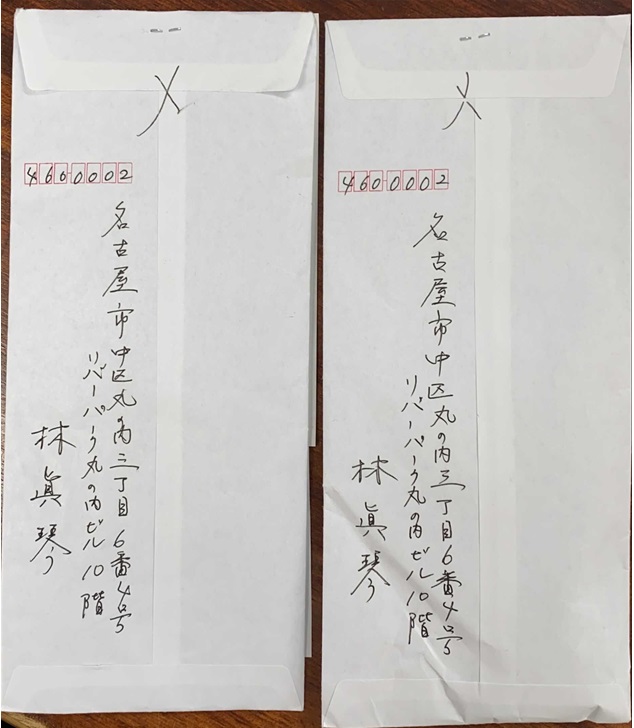 〆
4600002
名古屋市中区丸の内三丁目6番4号
リバーパーク丸の内ビル10階
林眞琴
〆
4600002
名古屋市中区丸の内三丁目6番4号
リバーパーク丸の内ビル10階
林眞琴